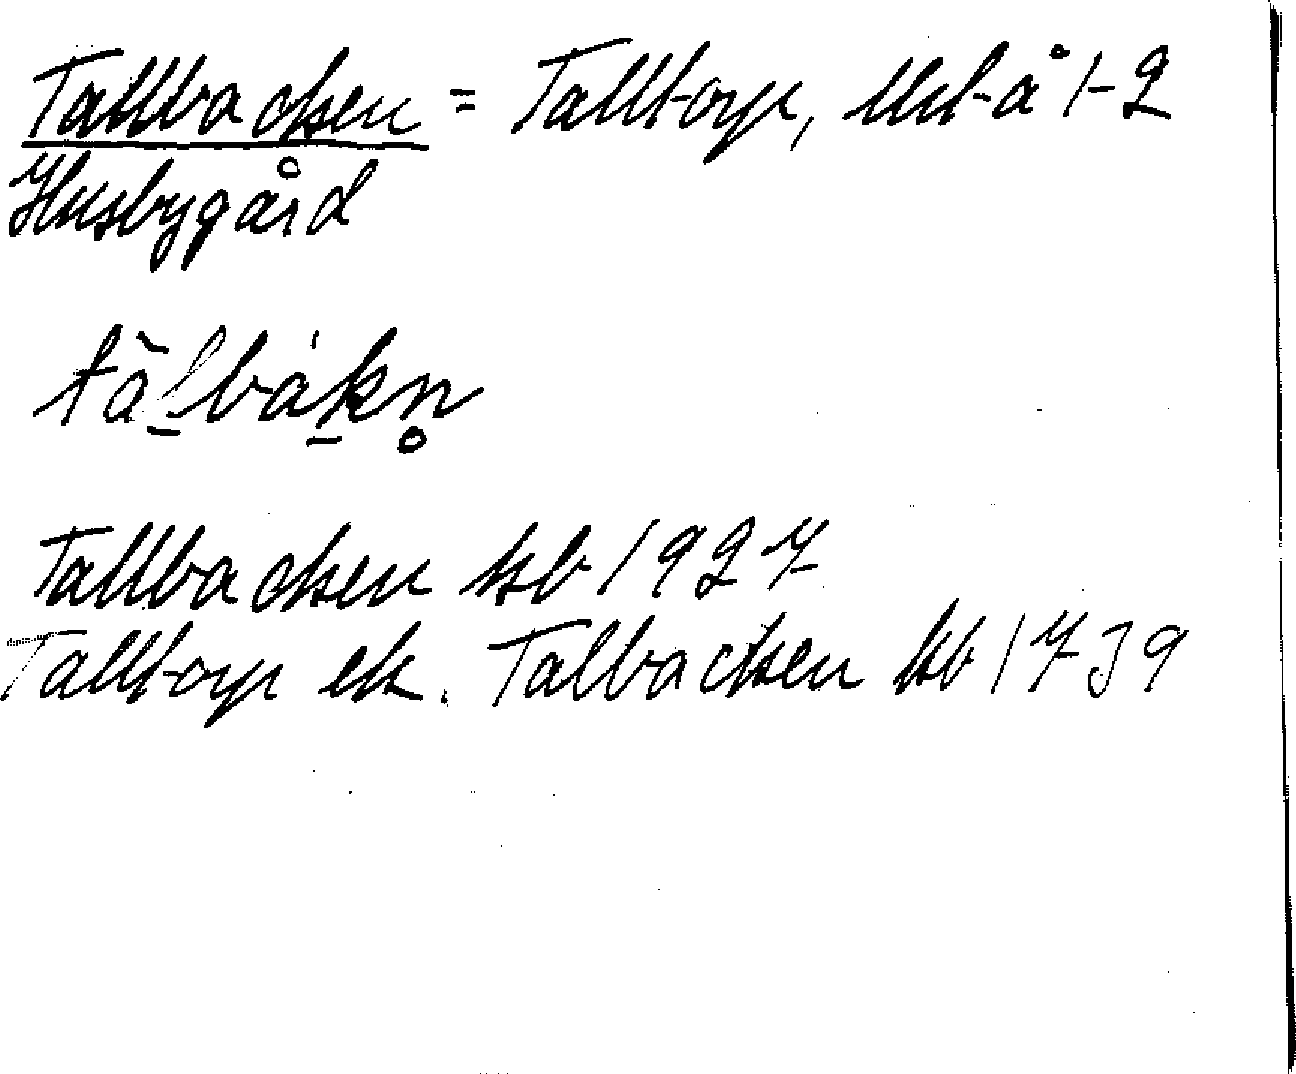 Tallbacken = Talltorp, Utb-å 1-2
Husbygård
tàl̠bák̠n̥
Tallbacken kb 1927
Talltorp ek. Talbacken kb 1739